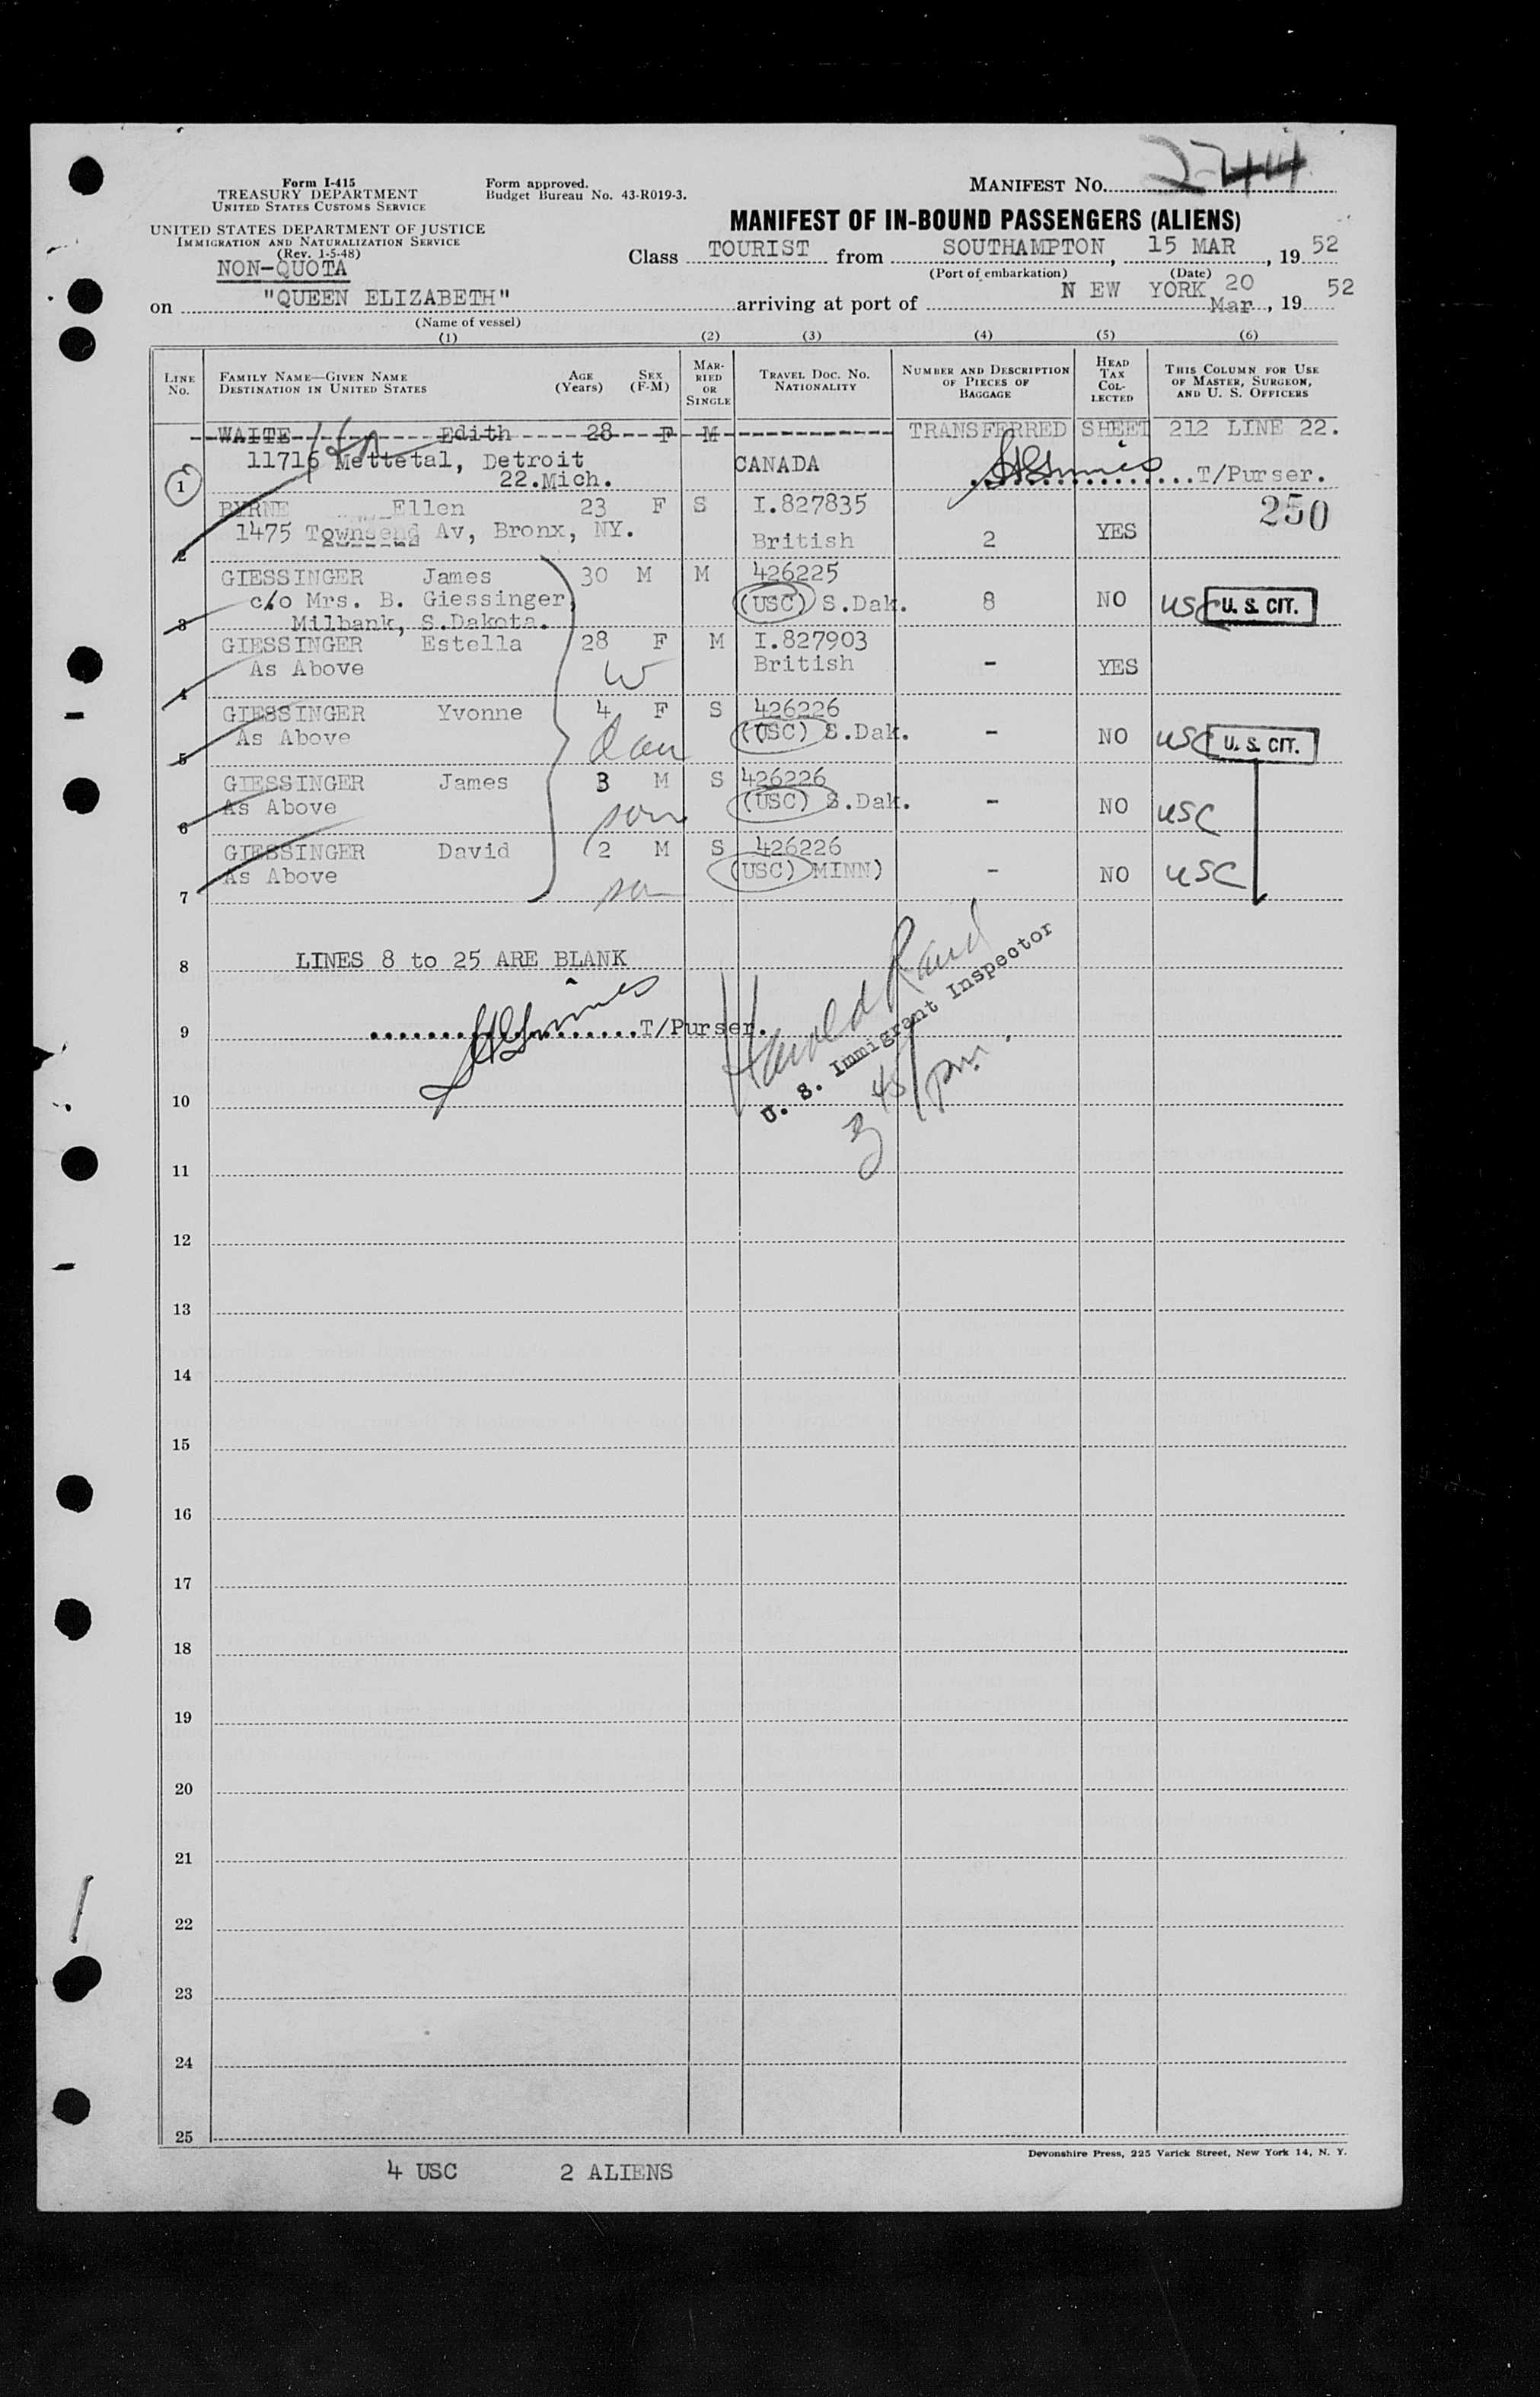 Form I-415
TREASURY DEPARTMENT
UNITED STATES CUSTOMS SERVICE
UNITED STATES DEPARTMENT OF JUSTICE
IMMIGRATION AND NATURALIZATION SERVICE
(Rev. 1-5-48)
NON-QUOTA
Form approved.
Budget Bureau No. 43-R019-3.
MANIFEST No.
MANIFEST OF IN-BOUND PASSENGERS (ALIENS)
Class TOURIST from SOUTHAMPTON, 15 MAR, 19 52
(Port of embarkation) (Date)
on "QUEEN ELIZABETH" arriving at port of NEW YORK 20 Mar, 19 52
(Name of vessel)
(1) (2) (3) (4) (5) (6)
LINE No. FAMILY NAME—GIVEN NAME DESTINATION IN UNITED STATES AGE (Years) SEX (F-M) MARRIED OR SINGLE TRAVEL DOC. NO. NATIONALITY NUMBER AND DESCRIPTION OF PIECES OF BAGGAGE HEAD TAX COLLECTED THIS COLUMN FOR USE OF MASTER, SURGEON, AND U. S. OFFICERS
WAITE Edith 28 F M TRANSFERRED SHEET 212 LINE 22.
11716 Mettetal, Detroit CANADA
1 22.Mich. T/Purser.
BYRNE Ellen 23 F S I.827835 250
1475 Townsend Av, Bronx, NY. British 2 YES
2
GIESSINGER James 30 M M 426225
c/o Mrs. B. Giessinger, (USC) S.Dak. 8 NO USC U. S. CIT.
3 Milbank, S.Dakota.
GIESSINGER Estella 28 F M I.827903
As Above W British - YES
4
GIESSINGER Yvonne 4 F S 426226
As Above dau (USC) S.Dak. - NO USC U. S. CIT.
5
GIESSINGER James 3 M S 426226
As Above son (USC) S.Dak. - NO USC
6
GIESSINGER David 2 M S 426226
As Above son (USC) MINN) - NO USC
7
8 LINES 8 to 25 ARE BLANK
9 T/Purser.
Harold Rand
U. S. Immigrant Inspector
3 45 pm.
10
11
12
13
14
15
16
17
18
19
20
21
22
23
24
25
Devonshire Press, 225 Varick Street, New York 14, N. Y.
4 USC 2 ALIENS